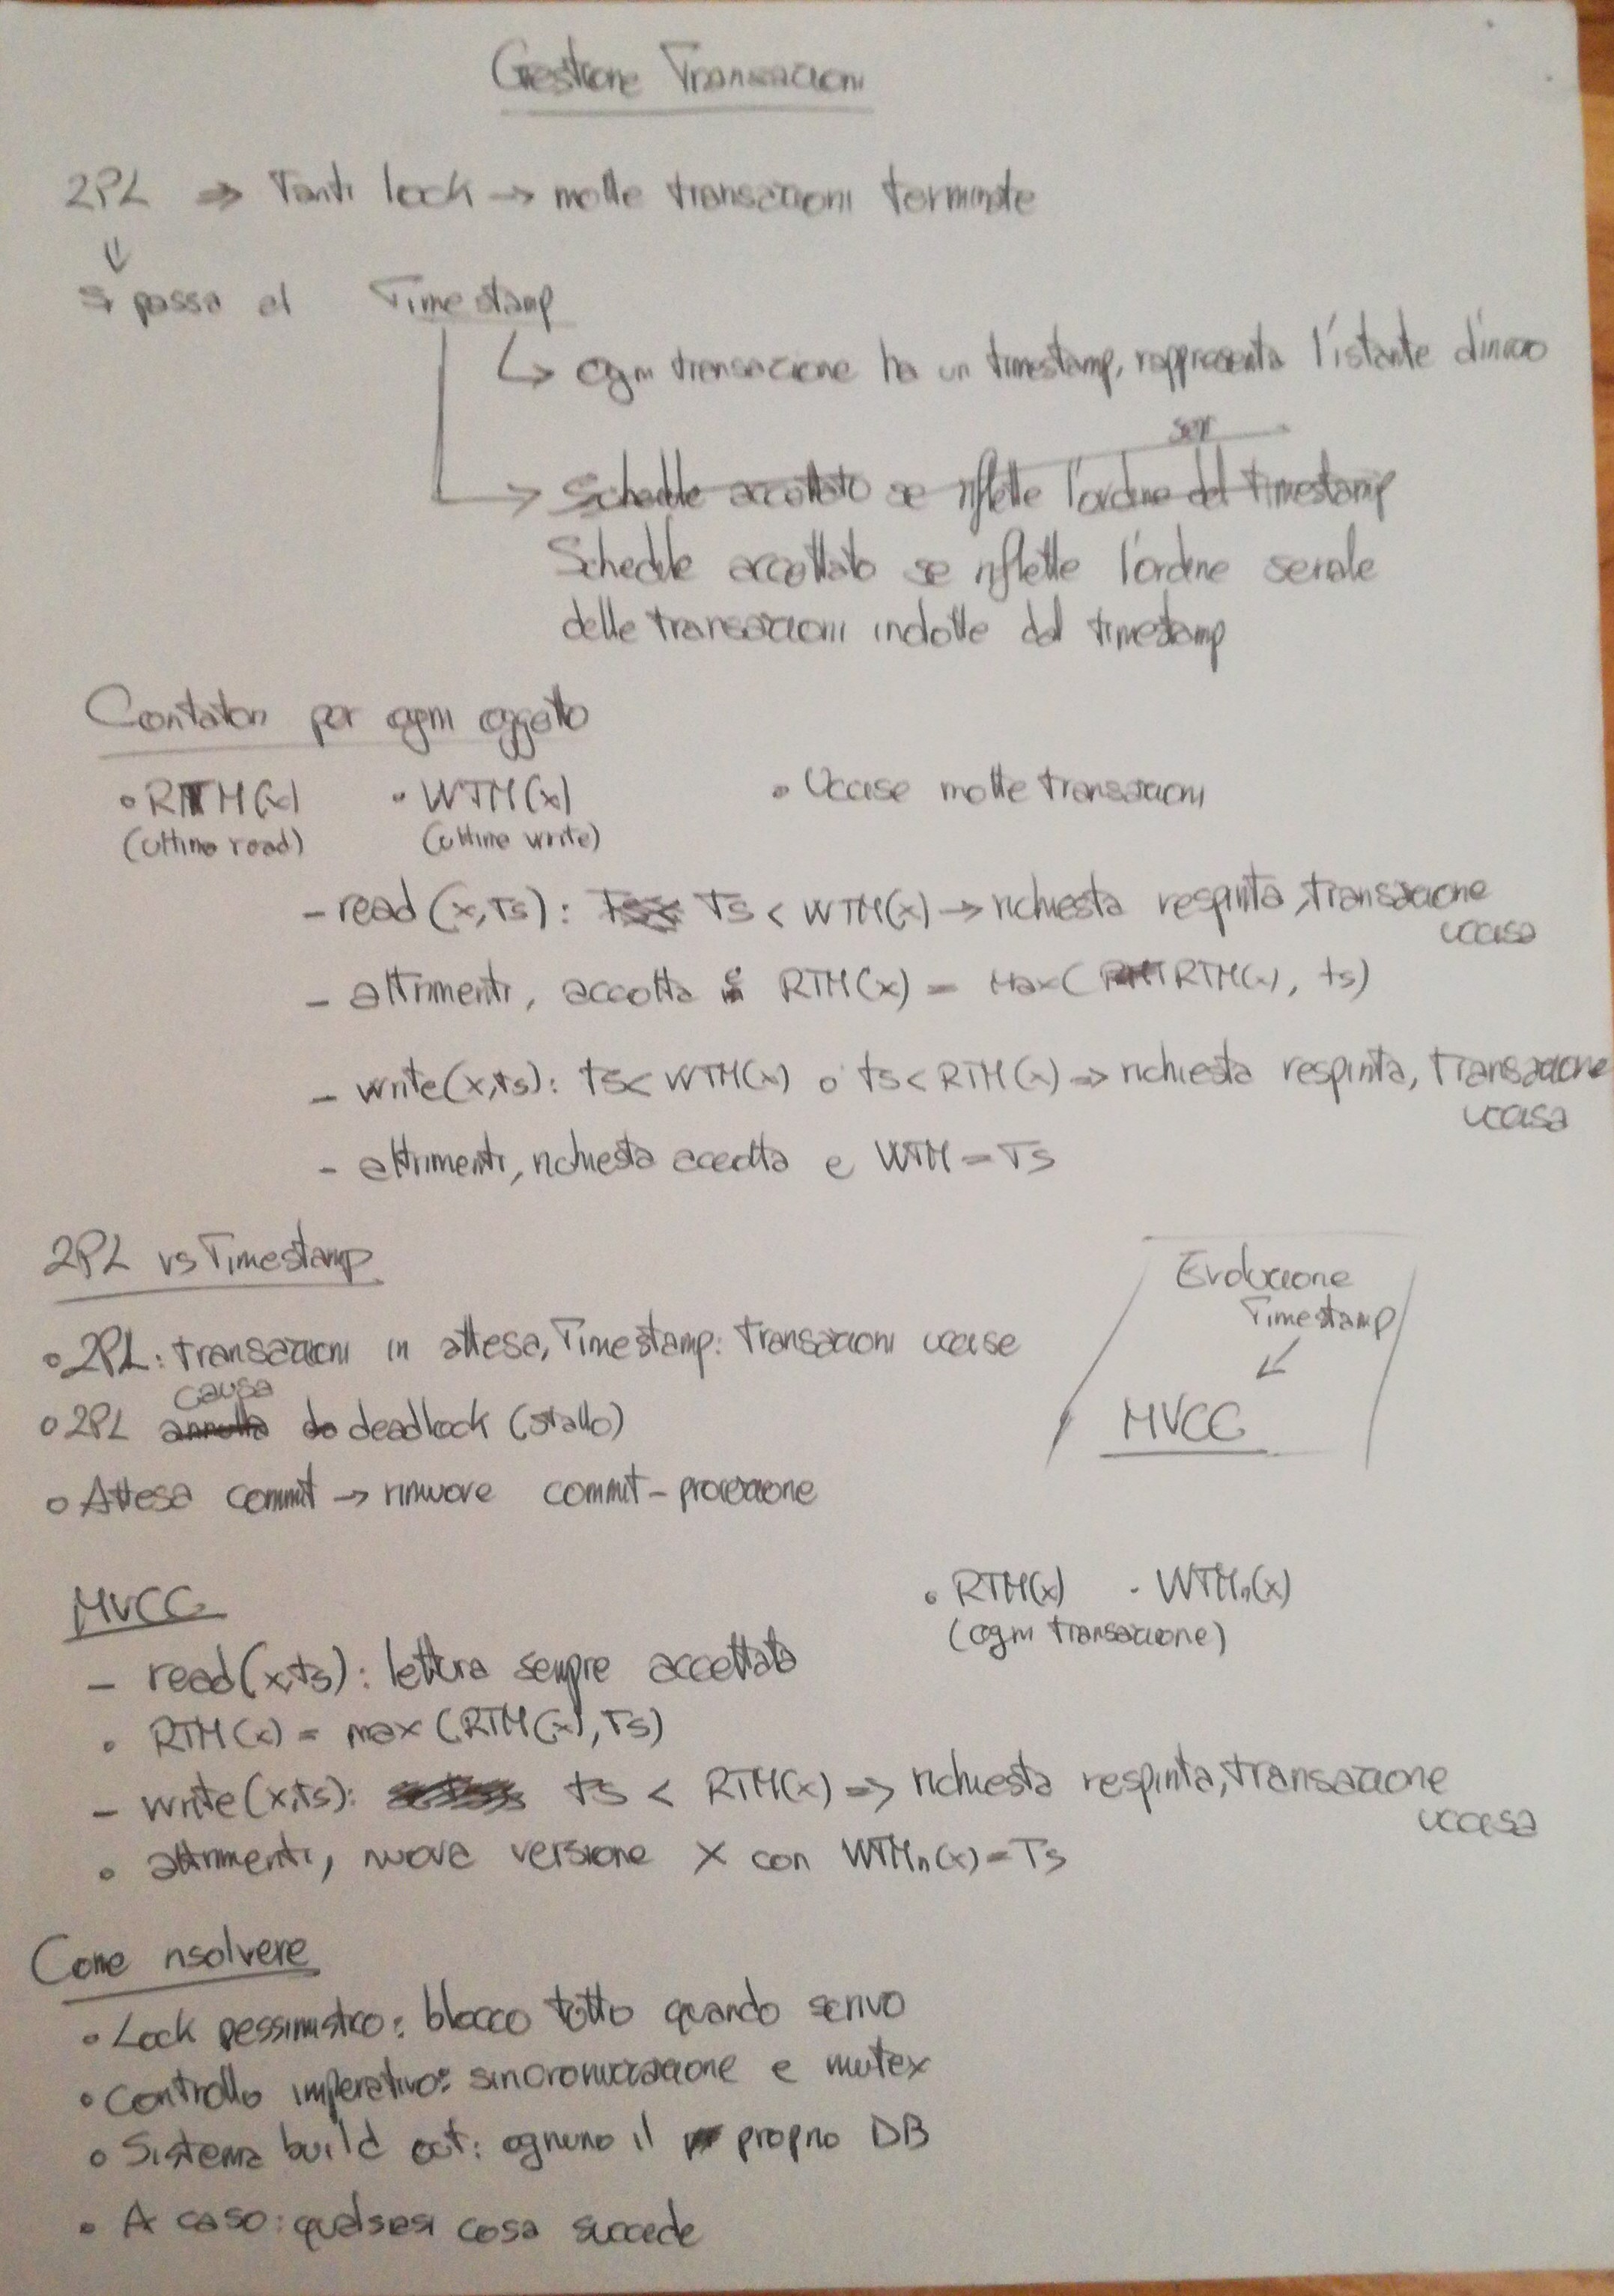 Gestione Transazioni
2PL ⇒ Tanti lock → molte transazioni terminate
⇓
si passa al Timestamp
↳ ogni transazione ha un timestamp, rappresenta l'istante d'inizio
ser
→ Schedule accettato se riflette l'ordine del timestamp
Schedule accettato se riflette l'ordine seriale
delle transazioni indotte dal timestamp
Contatori per ogni oggetto
• RTM(x) • WTM(x) • Uccise molte transazioni
(ultimo read) (ultimo write)
- read(x,Ts): Ts < WTM(x) → richiesta respinta, transazione
uccisa
- altrimenti, accolta e RTM(x) = Max(RTM(x), ts)
- write(x,ts): ts < WTM(x) o ts < RTM(x) ⇒ richiesta respinta, transazione
uccisa
- altrimenti, richiesta accolta e WTM = Ts
2PL vs Timestamp
• 2PL: transazioni in attesa, Timestamp: transazioni uccise
causa
• 2PL annulla do deadlock (stallo)
• Attesa commit → rimuove commit-proiezione
Evoluzione
Timestamp
↙
MVCC
MVCC
• RTM(x) • WTMn(x)
(ogni transazione)
- read(x,ts): lettura sempre accettata
• RTM(x) = max(RTM(x), Ts)
- write(x,ts): ts < RTM(x) ⇒ richiesta respinta, transazione
uccisa
• altrimenti, nuova versione X con WTMn(x) = Ts
Come risolvere
• Lock pessimistico: blocco tutto quando scrivo
• Controllo imperativo: sincronizzazione e mutex
• Sistema build out: ognuno il proprio DB
• A caso: qualsiasi cosa succede